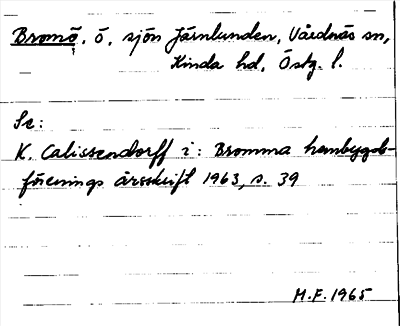 Bromö, ö, sjön Järnlunden, Vårdnäs sn,
Kinda hd, Östg. l.
Se:
K. Calissendorff i: Bromma hembygds-
förenings årsskrift 1963, s. 39
M.F. 1965